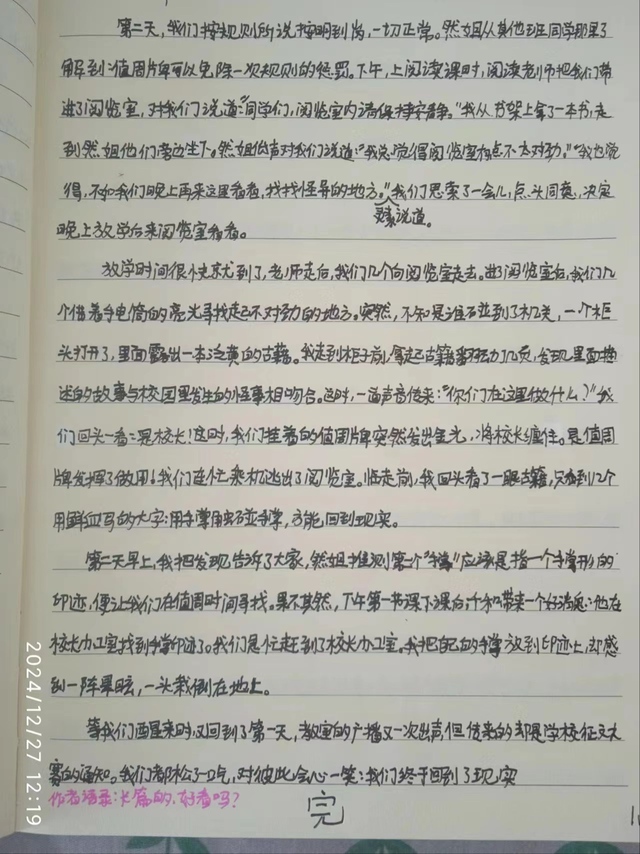 第二天,我们按规则所说按时到岗,一切正常。然姐从其他班同学那里了
解到:值周牌可以免除一次规则的惩罚。下午,上阅读课时,阅读老师把我们带
进了阅览室,对我们说道:“同学们,阅览室内请保持安静。”我从书架上拿了一本书,走
到然姐他们旁边坐下。然姐低声对我们说道:“我总觉得阅览室有点不太对劲。”“我也觉
得,不如我们晚上再来这里看看,找找怪异的地方。”我们思索了一会儿,点头同意,决定
说道。
晚上放学后来阅览室看看。
放学时间很快就到了,老师走后,我们几个向阅览室走去。进了阅览室后,我们几
个借着手电筒的亮光寻找起不对劲的地方。突然,不知是谁碰到了机关,一个柜
头打开了,里面露出一本泛黄的古籍。我走到柜子前,拿起古籍翻动几页,发现里面描
述的故事与校园里发生的怪事相吻合。这时,一道声音传来:“你们在这里做什么?”我
们回头一看:是校长!这时,我们挂着的值周牌突然发出金光,将校长缠住。是值周
牌发挥了作用!我们连忙乘机逃出了阅览室。临走前,我回头看了一眼古籍,只看到12个
用鲜血写的大字:用手掌触碰手掌,方能回到现实。
第二天早上,我把发现告诉了大家,然姐推测第二个“手掌”应该是指一个手掌形的
印迹,便让我们在值周时间寻找。果不其然,下午第一节课下课后,千和带来一个好消息:他在
校长办工室找到手掌印迹了。我们急忙赶到了校长办工室。我把自己的手掌放到印迹上,却感
到一阵晕眩,一头栽倒在地上。
等我们再醒来时,又回到了第一天,教室的广播又一次出声,但传来的却是学校征文大
赛的通知。我们都松了一口气,对彼此会心一笑:我们终于回到了现实
作者语录:长篇的,好看吗?
完
2024/12/27 12:19